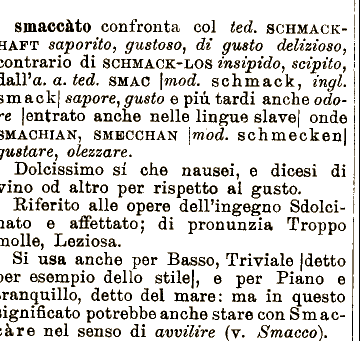 smaccàto confronta col ted. SCHMACK-
HAFT saporito, gustoso, di gusto delizioso,
contrario di SCHMACK-LOS insipido, scipito,
dall'a. a. ted. SMAC |mod. schmack, ingl.
smack| sapore, gusto e più tardi anche odo-
re |entrato anche nelle lingue slave| onde
SMACHIAN, SMECCHAN |mod. schmecken|
gustare, olezzare.
Dolcissimo sí che nausei, e dicesi di
vino od altro per rispetto al gusto.
Riferito alle opere dell'ingegno Sdolci-
nato e affettato; di pronunzia Troppo
molle, Leziosa.
Si usa anche per Basso, Triviale |detto
per esempio dello stile|, e per Piano e
tranquillo, detto del mare: ma in questo
significato potrebbe anche stare con Smac-
càre nel senso di avvilire (v. Smacco).